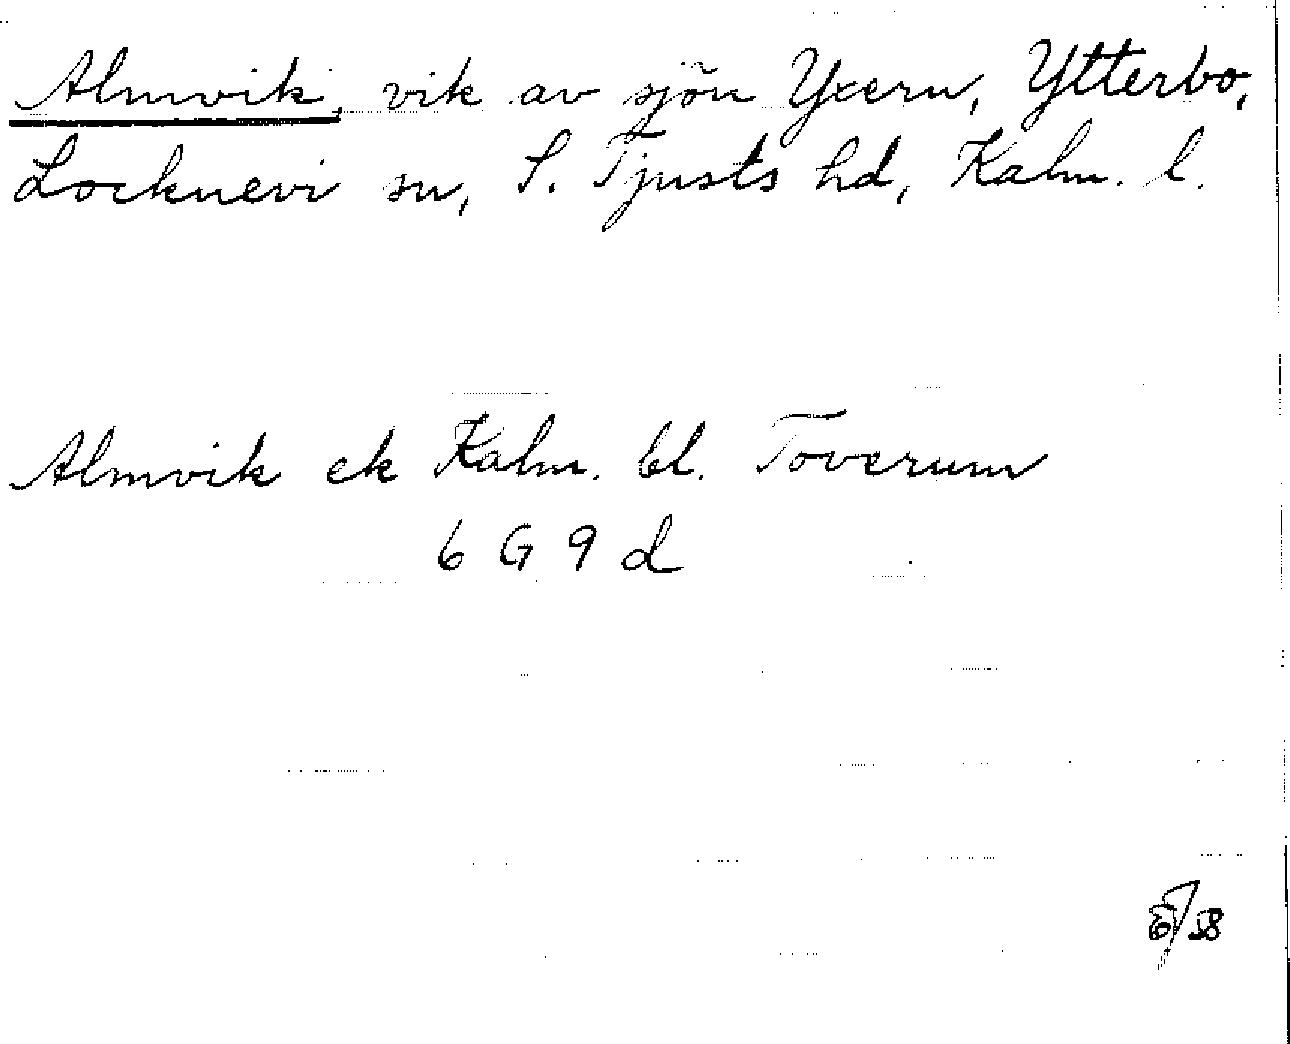 Almvik, vik av sjön Yxern, Ytterbo,
Locknevi sn, S. Tjusts hd, Kalm. l.
Almvik ek Kalm. bl. Toverum
6 G 9 d